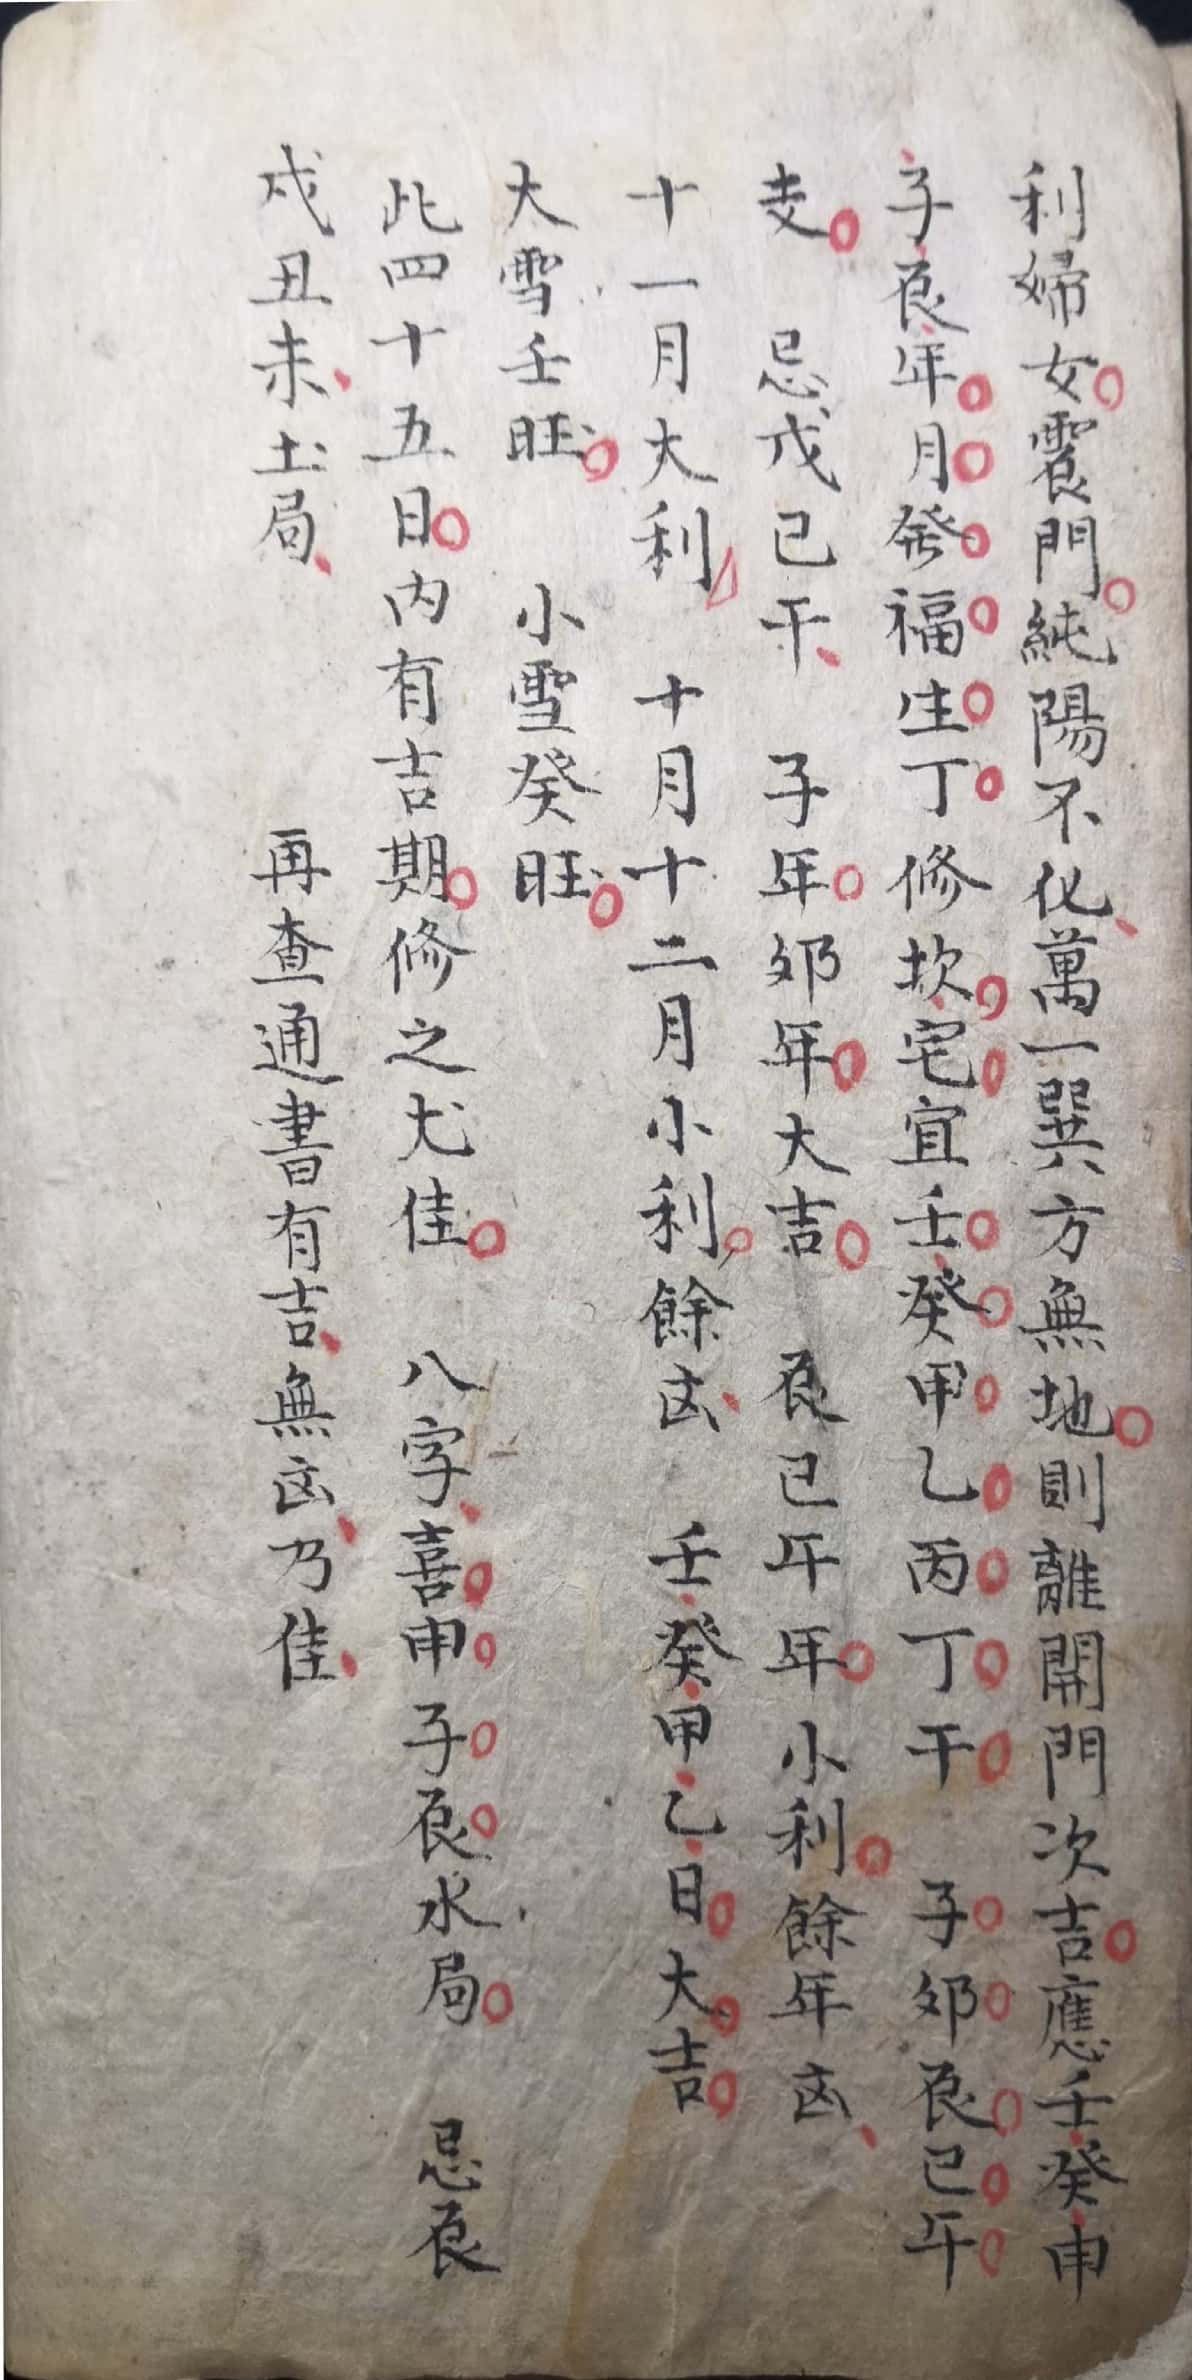 利婦女震門純陽不化萬一巽方無地則離開門次吉應壬癸申
子辰年月發福生丁修坎宅宜壬癸甲乙丙丁干　子卯辰巳午
支　忌戊己干　子年卯年大吉　辰巳午年小利餘年凶
十一月大利　十月十二月小利餘凶　壬癸甲乙日大吉
大雪壬旺　小雪癸旺
此四十五日内有吉期修之尤佳　八字喜申子辰水局　忌辰
戌丑未土局　再查通書有吉無凶乃佳